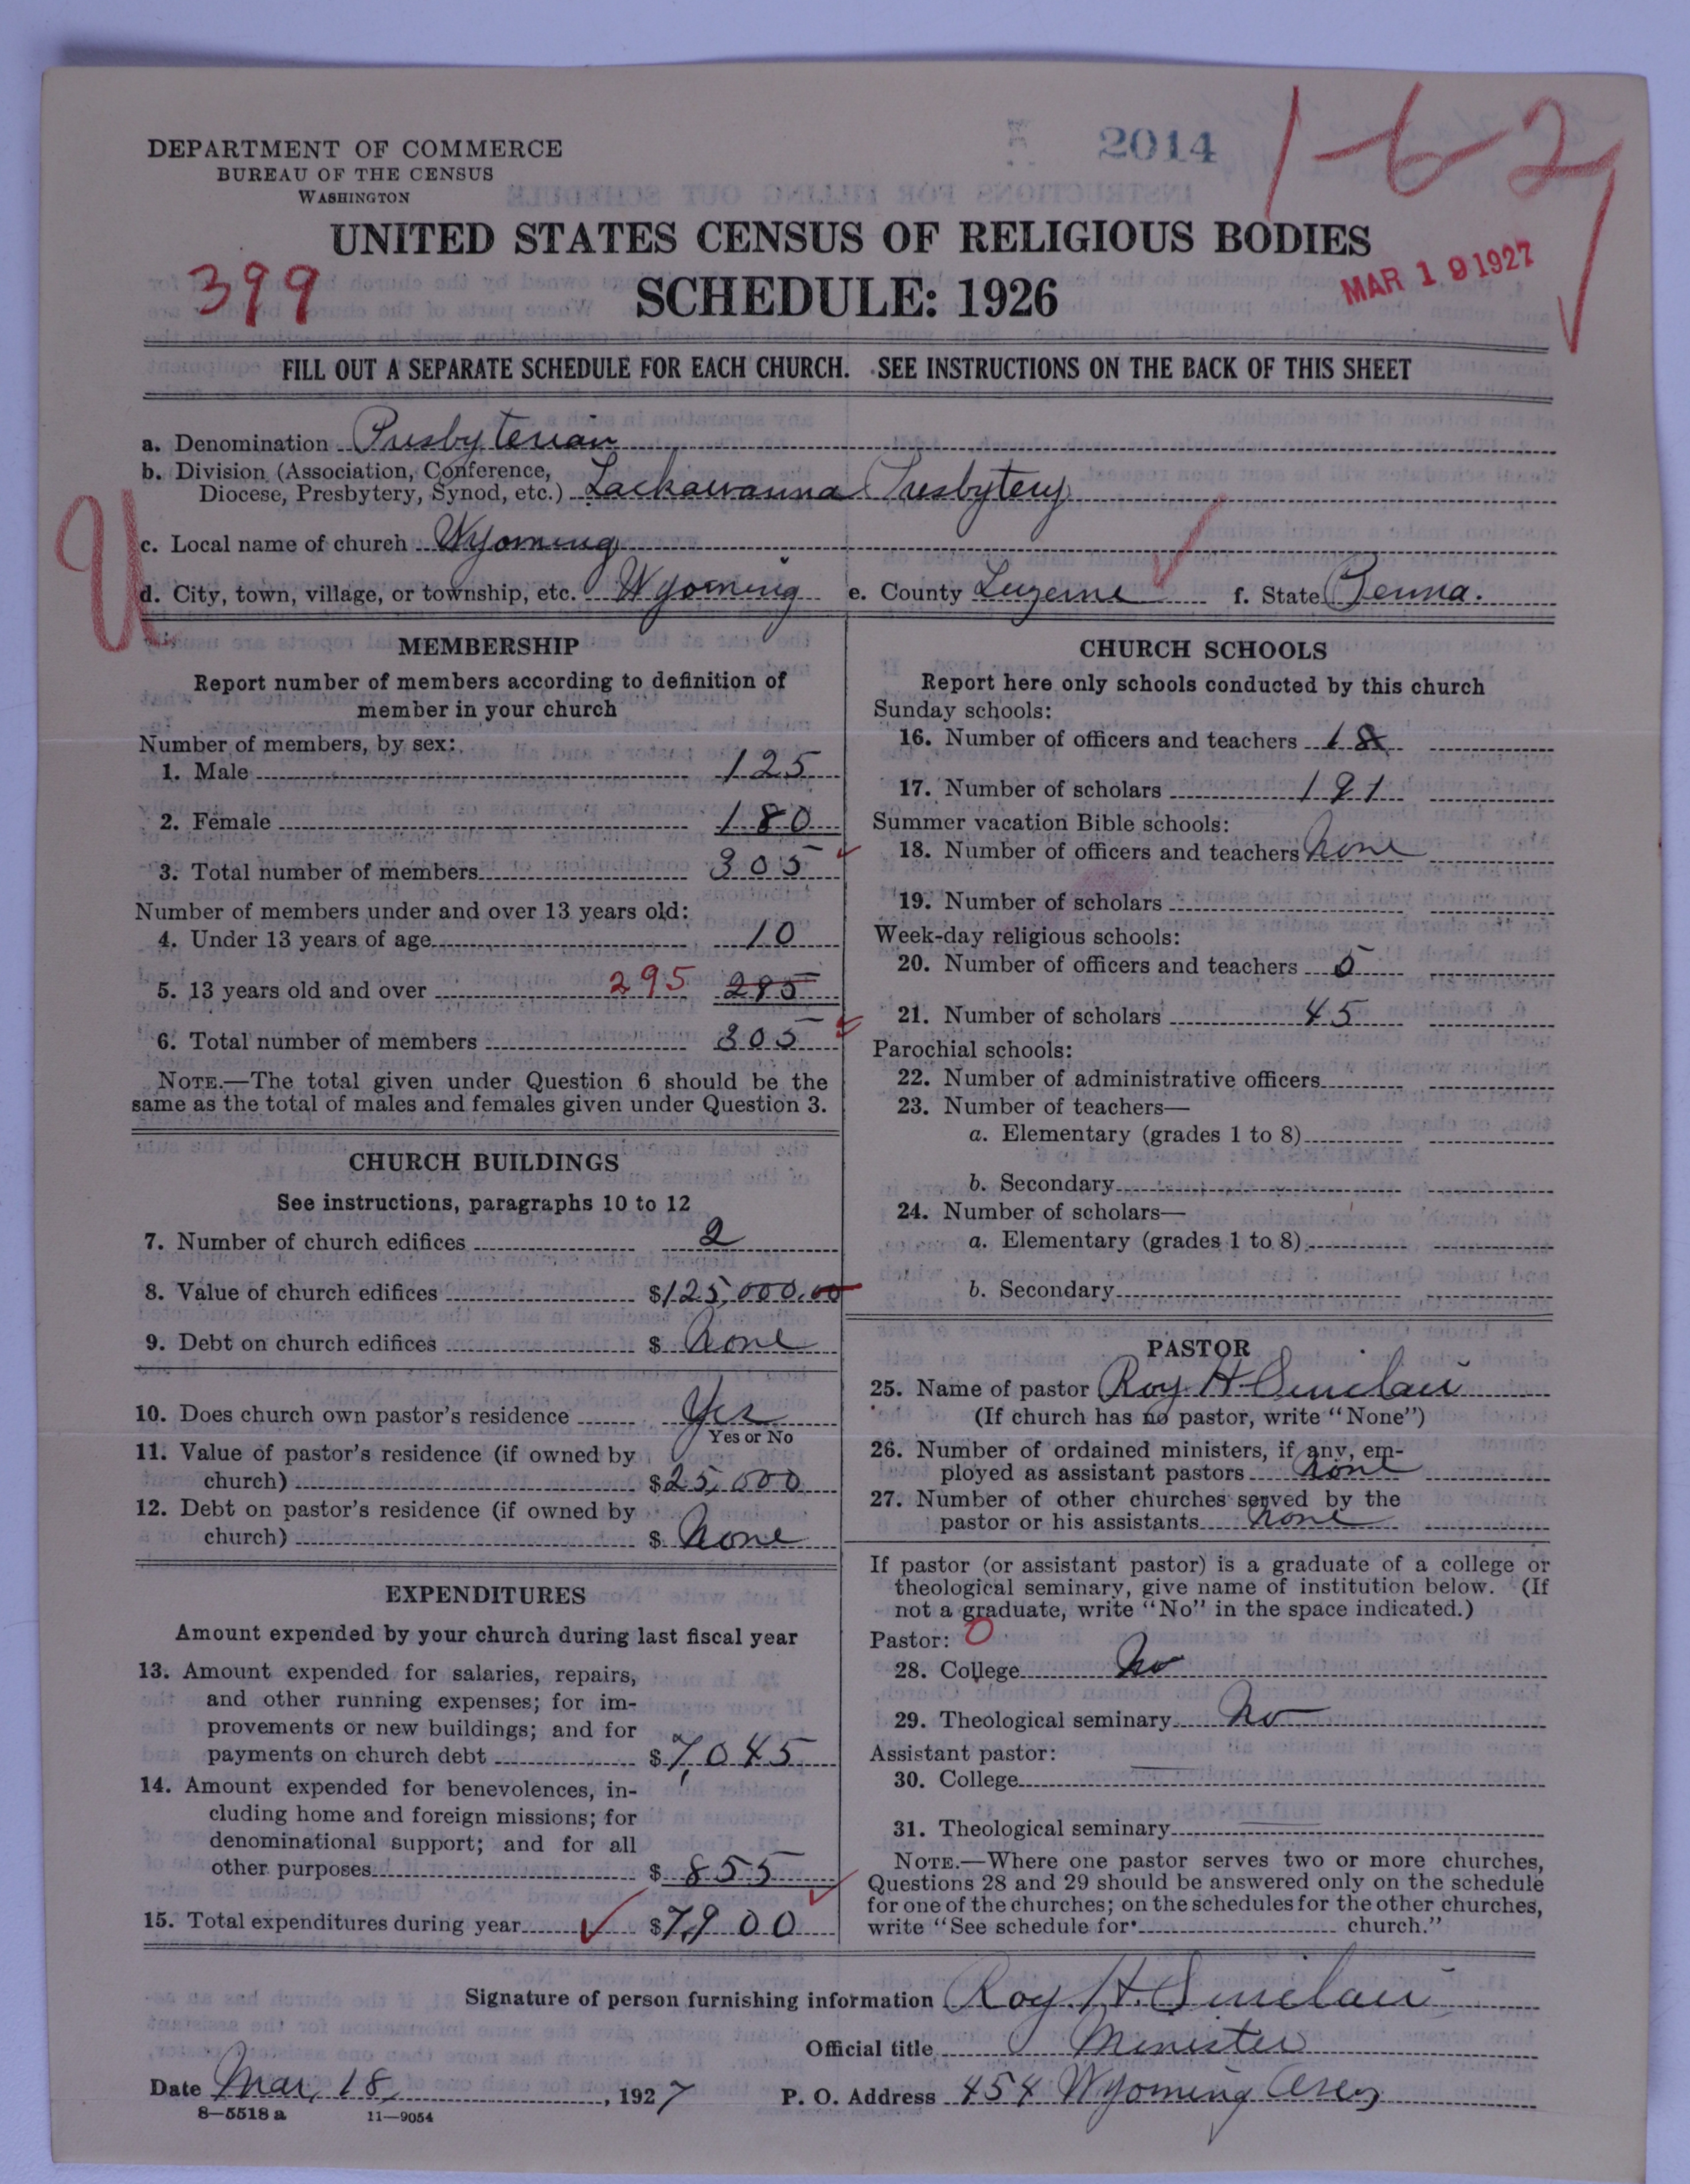 2014
1-6-2
DEPARTMENT OF COMMERCE
BUREAU OF THE CENSUS
WASHINGTON
UNITED STATES CENSUS OF RELIGIOUS BODIES
399
SCHEDULE: 1926
MAR 19 1927
FILL OUT A SEPARATE SCHEDULE FOR EACH CHURCH. SEE INSTRUCTIONS ON THE BACK OF THIS SHEET
a. Denomination Presbyterian
b. Division (Association, Conference,
Diocese, Presbytery, Synod, etc.) Lackawanna Presbytery
U
c. Local name of church Wyoming
d. City, town, village, or township, etc. Wyoming e. County Luzerne f. State Penna.
MEMBERSHIP
Report number of members according to definition of
member in your church
Number of members, by sex:
1. Male 125
2. Female 180
3. Total number of members 305
Number of members under and over 13 years old:
4. Under 13 years of age 10
5. 13 years old and over 295 285
6. Total number of members 305
NOTE.—The total given under Question 6 should be the
same as the total of males and females given under Question 3.
CHURCH BUILDINGS
See instructions, paragraphs 10 to 12
7. Number of church edifices 2
8. Value of church edifices $125,000.00
9. Debt on church edifices $ None
10. Does church own pastor's residence Yes
Yes or No
11. Value of pastor's residence (if owned by
church) $25,000
12. Debt on pastor's residence (if owned by
church) $ None
EXPENDITURES
Amount expended by your church during last fiscal year
13. Amount expended for salaries, repairs,
and other running expenses; for im-
provements or new buildings; and for
payments on church debt $7,045
14. Amount expended for benevolences, in-
cluding home and foreign missions; for
denominational support; and for all
other purposes $ 855
15. Total expenditures during year $7,900
CHURCH SCHOOLS
Report here only schools conducted by this church
Sunday schools:
16. Number of officers and teachers 18
17. Number of scholars 191
Summer vacation Bible schools:
18. Number of officers and teachers None
19. Number of scholars
Week-day religious schools:
20. Number of officers and teachers 5
21. Number of scholars 45
Parochial schools:
22. Number of administrative officers
23. Number of teachers—
a. Elementary (grades 1 to 8)
b. Secondary
24. Number of scholars—
a. Elementary (grades 1 to 8)
b. Secondary
PASTOR
25. Name of pastor Roy H. Sinclair
(If church has no pastor, write "None")
26. Number of ordained ministers, if any, em-
ployed as assistant pastors None
27. Number of other churches served by the
pastor or his assistants None
If pastor (or assistant pastor) is a graduate of a college or
theological seminary, give name of institution below. (If
not a graduate, write "No" in the space indicated.)
Pastor: 0
28. College No
29. Theological seminary No
Assistant pastor:
30. College
31. Theological seminary
NOTE.—Where one pastor serves two or more churches,
Questions 28 and 29 should be answered only on the schedule
for one of the churches; on the schedules for the other churches,
write "See schedule for church."
Signature of person furnishing information Roy H. Sinclair
Official title Minister
Date Mar. 18, 1927 P. O. Address 454 Wyoming Ave
8—5518 a 11—9054